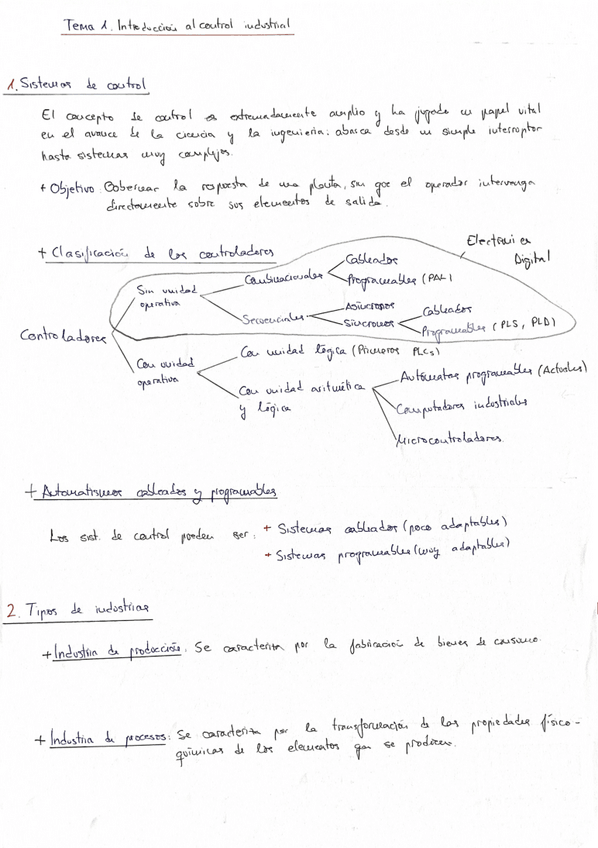 Tema 1. Introducción al control industrial
1. Sistemas de control
El concepto de control es extremadamente amplio y ha jugado un papel vital
en el avance de la ciencia y la ingeniería: abarca desde un simple interruptor
hasta sistemas muy complejos.
+ Objetivo: Gobernar la respuesta de una planta, sin que el operador intervenga
directamente sobre sus elementos de salida.
+ Clasificación de los controladores
Electrónica
Digital
Controladores
Sin unidad
operativa
Combinacionales
Cableados
Programables (PAL)
Secuenciales
Asíncronos
Síncronos
Cableados
Programables (PLS, PLD)
Con unidad
operativa
Con unidad lógica (Primeros PLCs)
Con unidad aritmética
y lógica
Autómatas programables (Actuales)
Computadores industriales
Microcontroladores
+ Automatismos cableados y programables
Los sist. de control pueden ser: + Sistemas cableados (poco adaptables)
+ Sistemas programables (muy adaptables)
2. Tipos de industrias
+ Industria de producción: Se caracteriza por la fabricación de bienes de consumo.
+ Industria de procesos: Se caracteriza por la transformación de las propiedades físico-
químicas de los elementos que se producen.